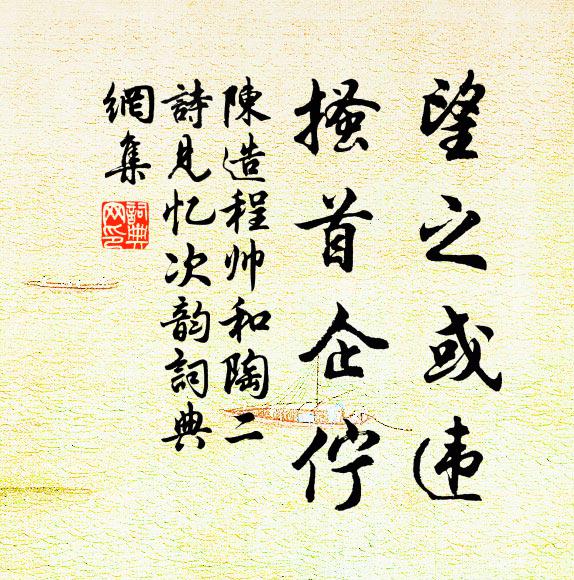 望之或违
搔首企佇
陳造程帅和陶二
詩見忆次韵詞典
網集
詞典
网印